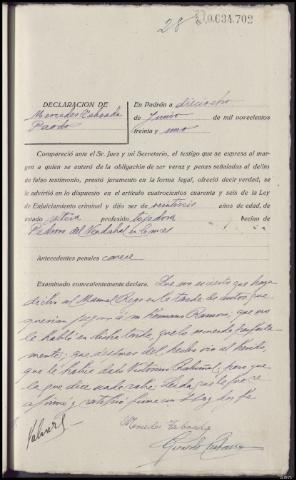 28
0.634.702
DECLARACION DE
Mercedes Taboada
Pardo
En Padrón a dieciocho
de Junio de mil novecientos
treinta y uno
Compareció ante el Sr. Juez y mi Secretario, el testigo que se expresa al mar-
gen a quien se enteró de la obligación de ser veraz y penas señaladas al delito
de falso testimonio, prestó juramento en la forma legal, ofreció decir verdad, se
le advirtió en lo dispuesto en el artículo cuatrocientos cuarenta y seis de la Ley
de Enjuiciamiento criminal y dijo ser de veintiseis años de edad, de
estado soltera profesión tejedora vecina de
Padron del
Antecedentes penales carece
Examinado convenientemente declara. Que no es cierto que haya
dicho al Manuel Rego en la tarde de autos que
querian pegar á su hermano Ramon, que no
le habló en dicha tarde, que lo recuerda perfecta
mente; que despues del hecho vio al herido,
que le habia dado Victorino; pero que
la que dice nada sabe. Leida,
afirma y ratifica firma con S. Sª y doy fe
Mercedes Taboada